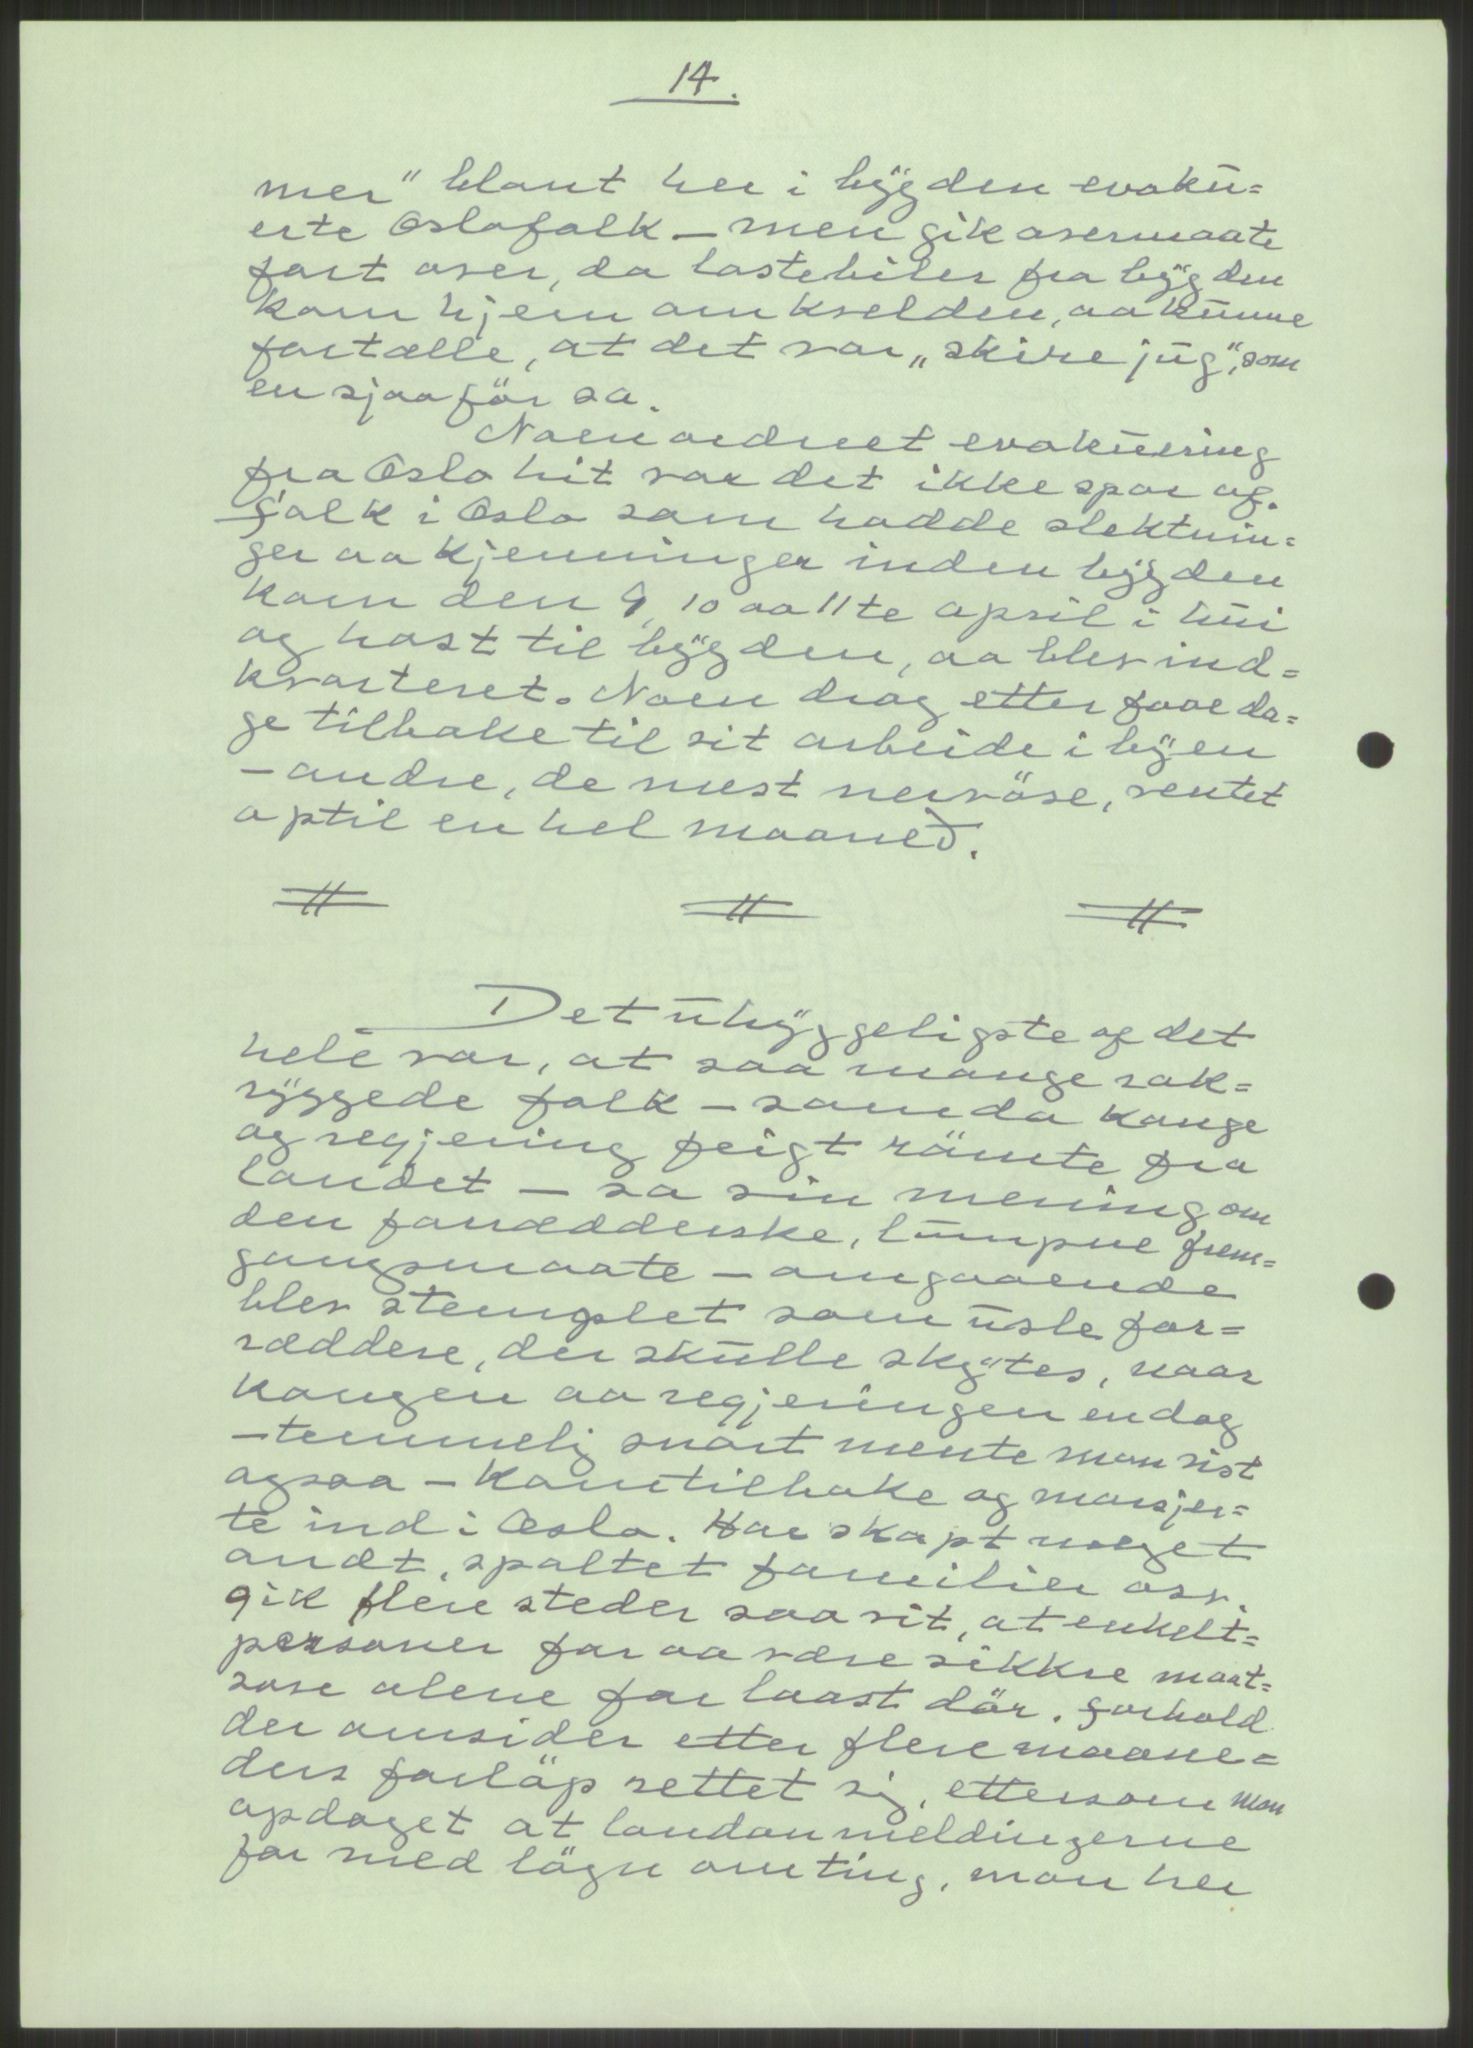 14.
mer" blant her i bÿgden evakū=
erte Oslofolk – men gik overmaate
fort over, da lastebiler fra bÿgden
kom hjem om kvelden, aa kūnne
fortælle, at det var „skire jūg", som
en sjaaför sa.
Noen ordnet evakūering
fra Oslo hit var det ikke spor af.
Folk i Oslo som hadde slektnin=
ger aa kjenninger inden bÿgden
kom den 9, 10 aa 11te april i hūi
og hast til bÿgden, aa blev ind=
kvarteret. Noen drog etter faae da=
ge tilbake til sit arbeide i bÿen
– andre, de mest nervöse, ventet
optil en hel maaned.
Det ūhÿggeligste af det
hele var, at saa mange rak=
rÿggede folk – som da konge
og regjering feigt römte fra
landet – sa sin mening om
den forrædderske, lūmpne frem=
gangsmaate – omgaaende
blev stemplet som ūsle for=
ræddere, der skūlle skÿtes, naar
kongen aa regjeringen en dag
– temmelig snart mente man vist
ogsaa – kom tilbake og marsjer=
te ind i Oslo. Har skapt meget
ondt, spaltet familier osv.
gik flere steder saa vit, at enkelt=
personer for aa være sikkre maat=
sove alene for laast dör. Forhold
der omsider etter flere maane=
ders forlöp rettet sig, ettersom man
opdaget at londonmeldingerne
for med lögn om ting, man her